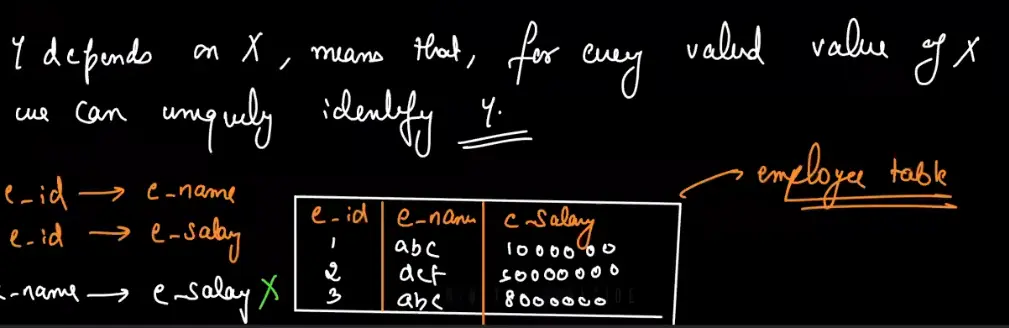 Y depends on X, means that, for every valid value of X
we can uniquely identify Y.
employee table
e_id → e_name
e_id → e_salary
e_name → e_salary X
e_id e_name e_salary
1 abc 1000000
2 def 50000000
3 abc 8000000